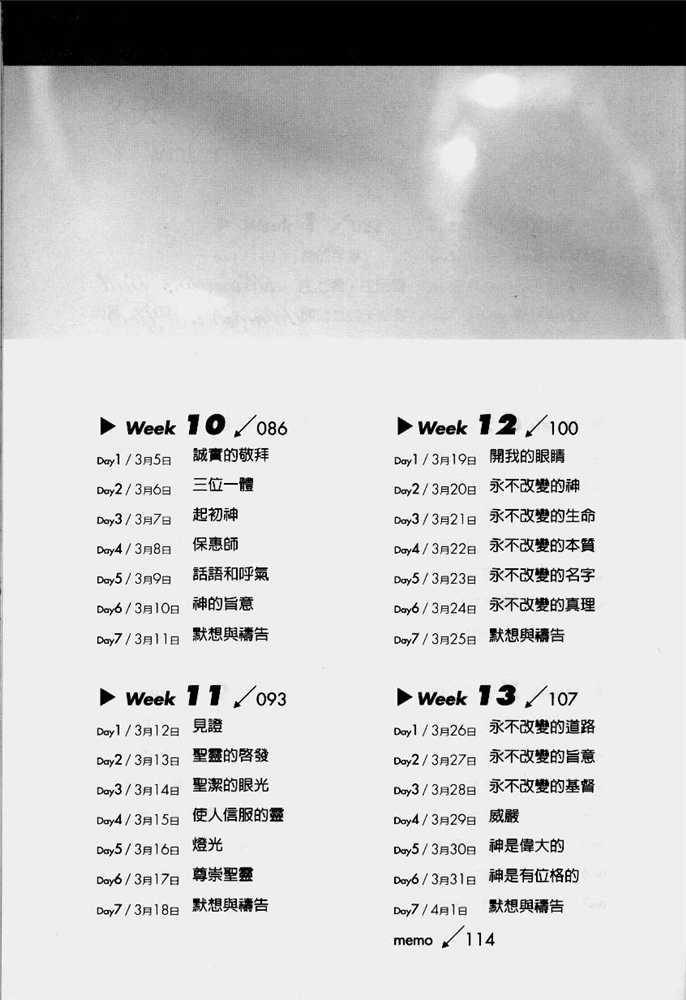 Week 10 086
Day1 / 3月5日 誠實的敬拜
Day2 / 3月6日 三位一體
Day3 / 3月7日 起初神
Day4 / 3月8日 保惠師
Day5 / 3月9日 話語和呼氣
Day6 / 3月10日 神的旨意
Day7 / 3月11日 默想與禱告
Week 11 093
Day1 / 3月12日 見證
Day2 / 3月13日 聖靈的啓發
Day3 / 3月14日 聖潔的眼光
Day4 / 3月15日 使人信服的靈
Day5 / 3月16日 燈光
Day6 / 3月17日 尊崇聖靈
Day7 / 3月18日 默想與禱告
Week 12 100
Day1 / 3月19日 開我的眼睛
Day2 / 3月20日 永不改變的神
Day3 / 3月21日 永不改變的生命
Day4 / 3月22日 永不改變的本質
Day5 / 3月23日 永不改變的名字
Day6 / 3月24日 永不改變的真理
Day7 / 3月25日 默想與禱告
Week 13 107
Day1 / 3月26日 永不改變的道路
Day2 / 3月27日 永不改變的旨意
Day3 / 3月28日 永不改變的基督
Day4 / 3月29日 威嚴
Day5 / 3月30日 神是偉大的
Day6 / 3月31日 神是有位格的
Day7 / 4月1日 默想與禱告
memo 114